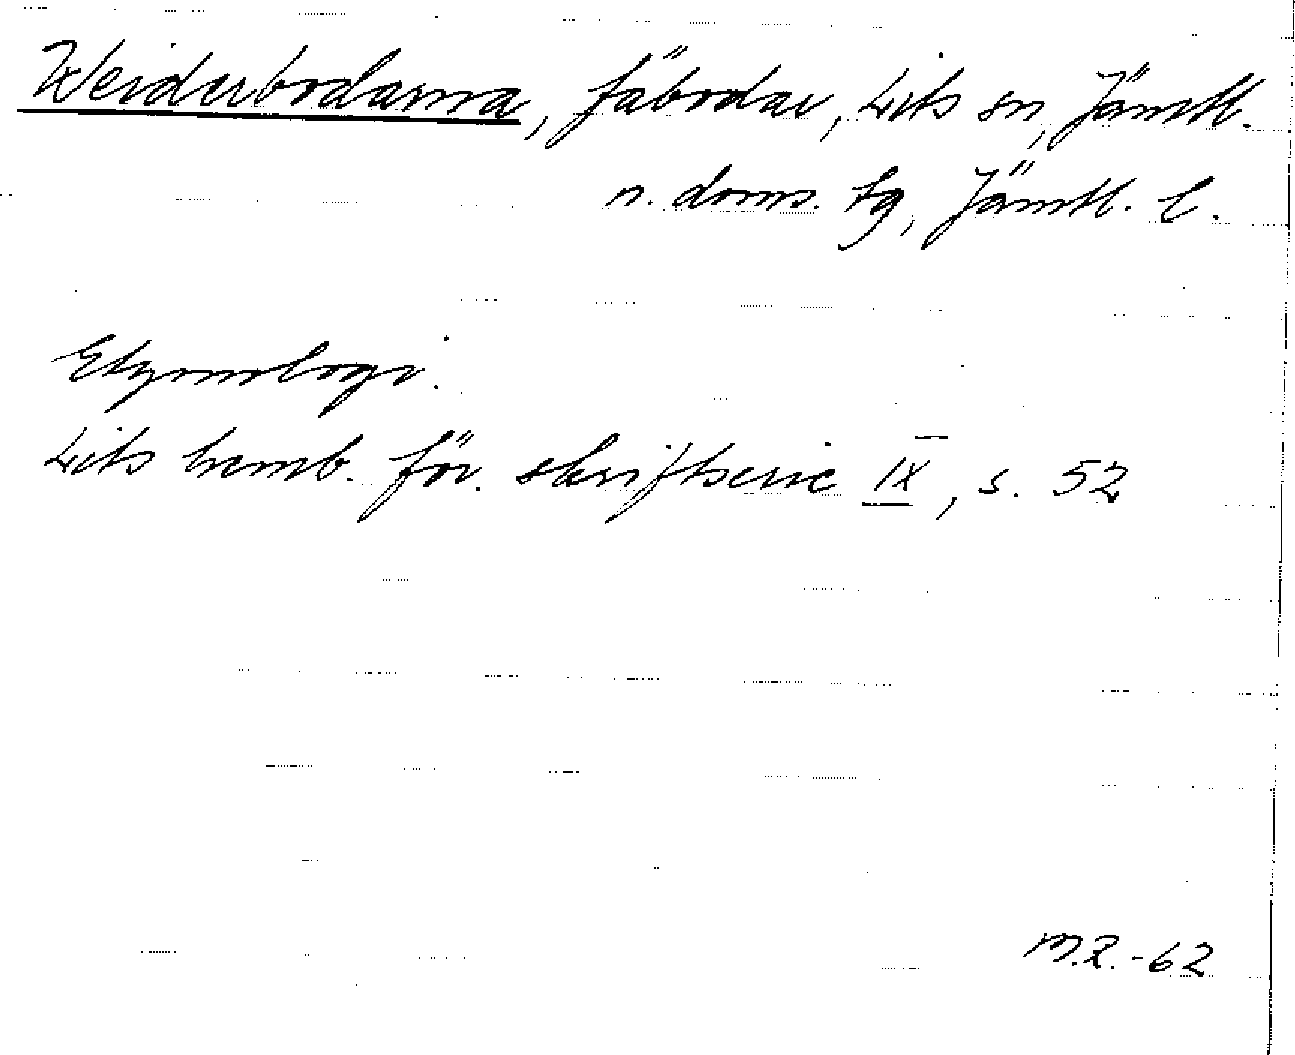 Weiderbodarna, fäbodar, Lits sn, Jämtl.
n. doms. tg, Jämtl. l.
Etymologi.
Lits hemb. för. skriftserie IX, s. 52
M.R.-62